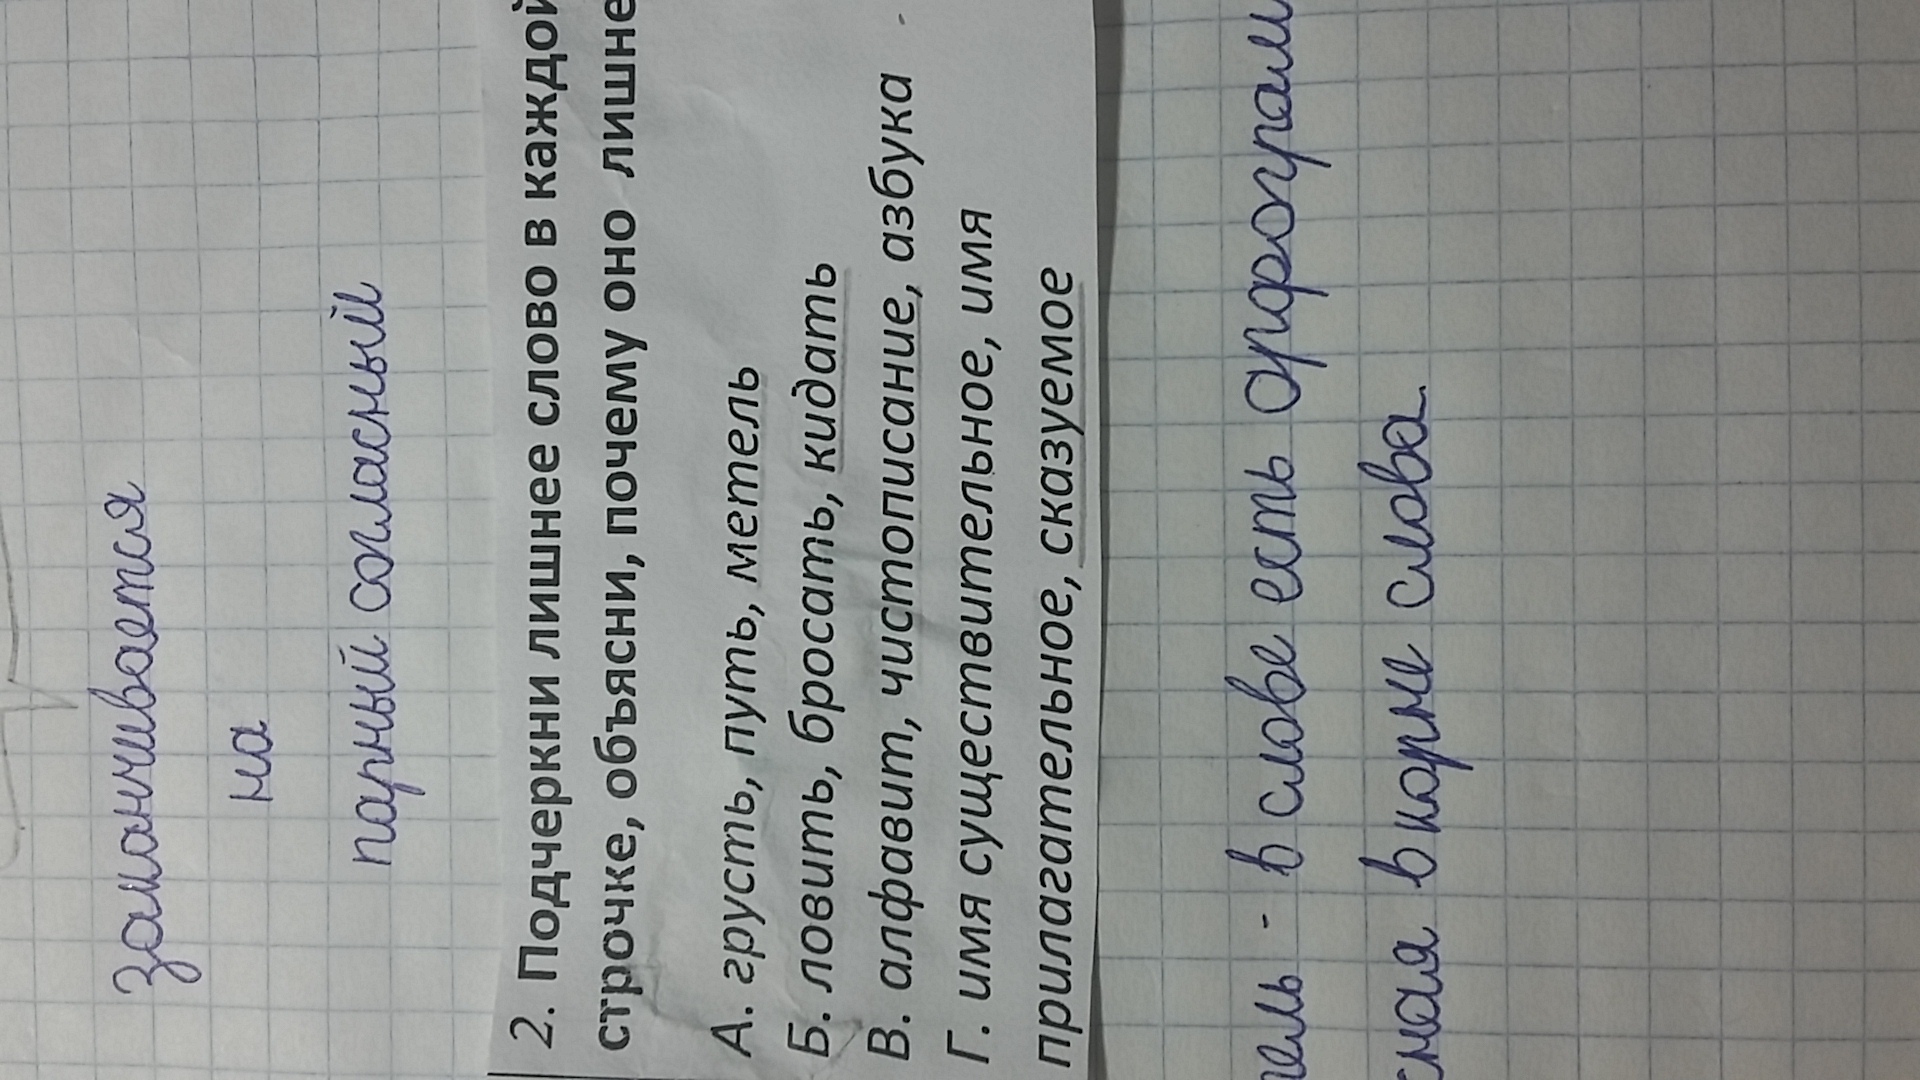 заканчивается
на
парный согласный
2. Подчеркни лишнее слово в каждой
строчке, объясни, почему оно лишне
А. грусть, путь, метель
Б. ловить, бросать, кидать
В. алфавит, чистописание, азбука
Г. имя существительное, имя
прилагательное, сказуемое
тель - в слове есть орфограм
сная в корне слова.